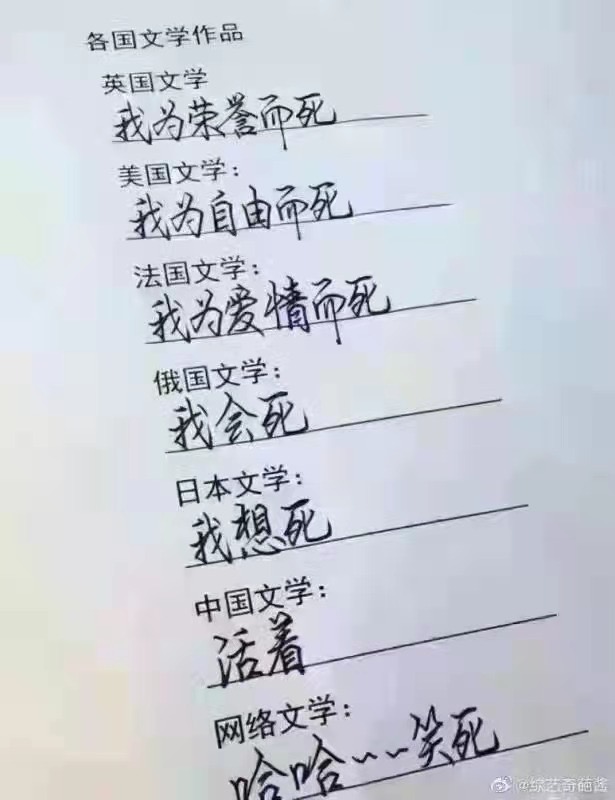 各国文学作品
英国文学
我为荣誉而死
美国文学：
我为自由而死
法国文学：
我为爱情而死
俄国文学：
我会死
日本文学：
我想死
中国文学：
活着
网络文学：
哈哈~~笑死
@综艺奇葩酱